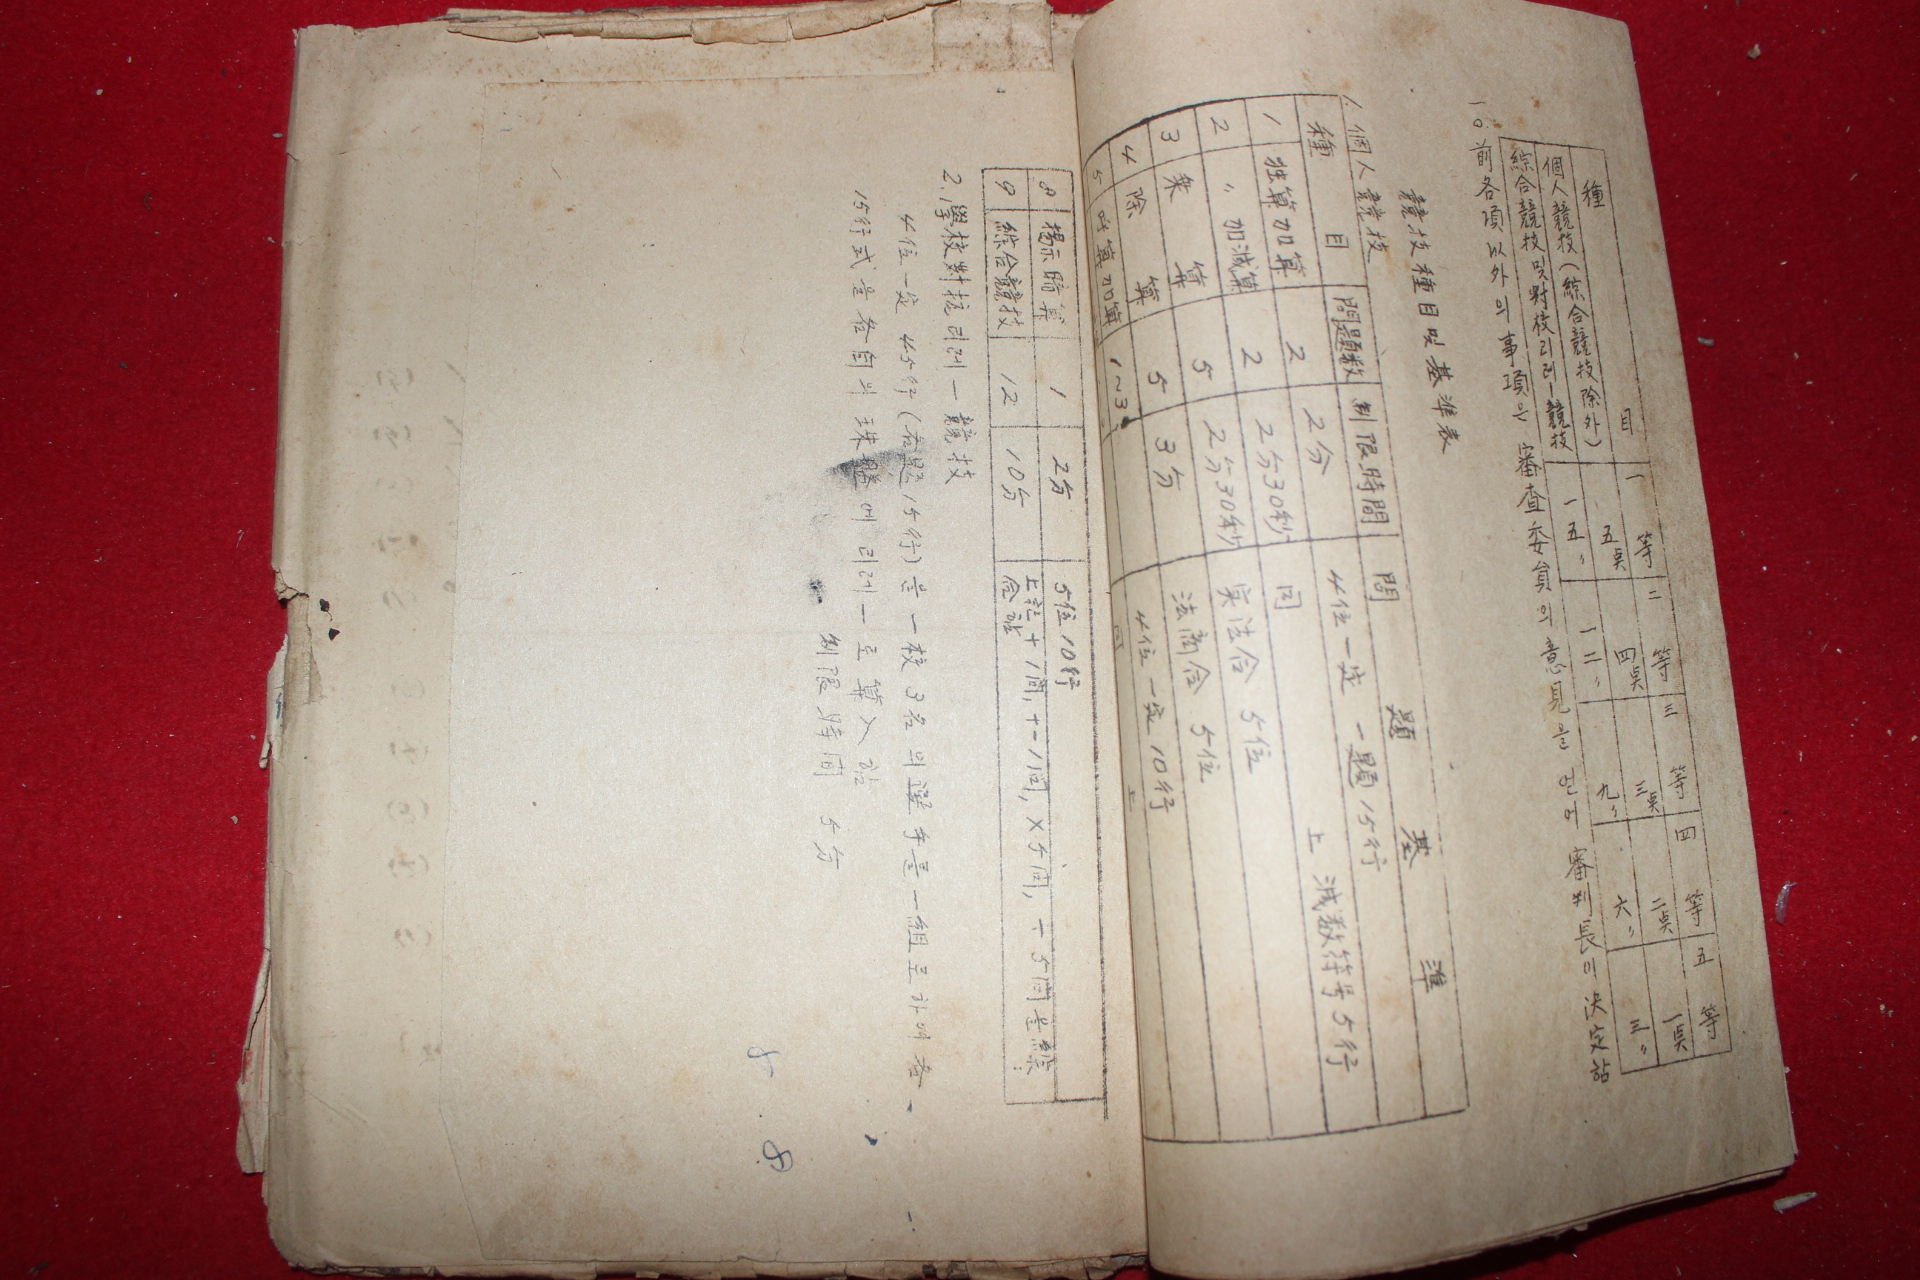 種 目 一等 二等 三等 四等 五等
個人競技(綜合競技除外) 五点 四点 三点 二点 一点
綜合競技 및 対校 리레ー競技 一五〃 一二〃 九〃 六〃 三〃
一〇. 前各項 以外의 事項은 審査委員의 意見을 얻어 審判長이 決定함
競技種目 및 基準表
1. 個人競技
種 目 問題数 制限時間 問 題 基 準
1 独算加算 2 2分 4位一定 一題15行
2 〃 加減算 2 2分30秒 同 上 減数符号5行
3 乘 算 5 2分30秒 実法合 5位
4 除 算 5 3分 法商合 5位
5 呼算加算 1~3 4位一定10行
同 上
8 揭示暗算 1 2分 5位10行
9 綜合競技 12 10分 上記+1問, +-1問, ×5問, ÷5問을綜
合함
2. 學校対抗리레ー競技
4位一定 45行(各題15行)을 一校3名의 選手를 一組로하여 各
15行式을各自의 珠盤에 리레ー로 算入함
制限時間 5分
8
8